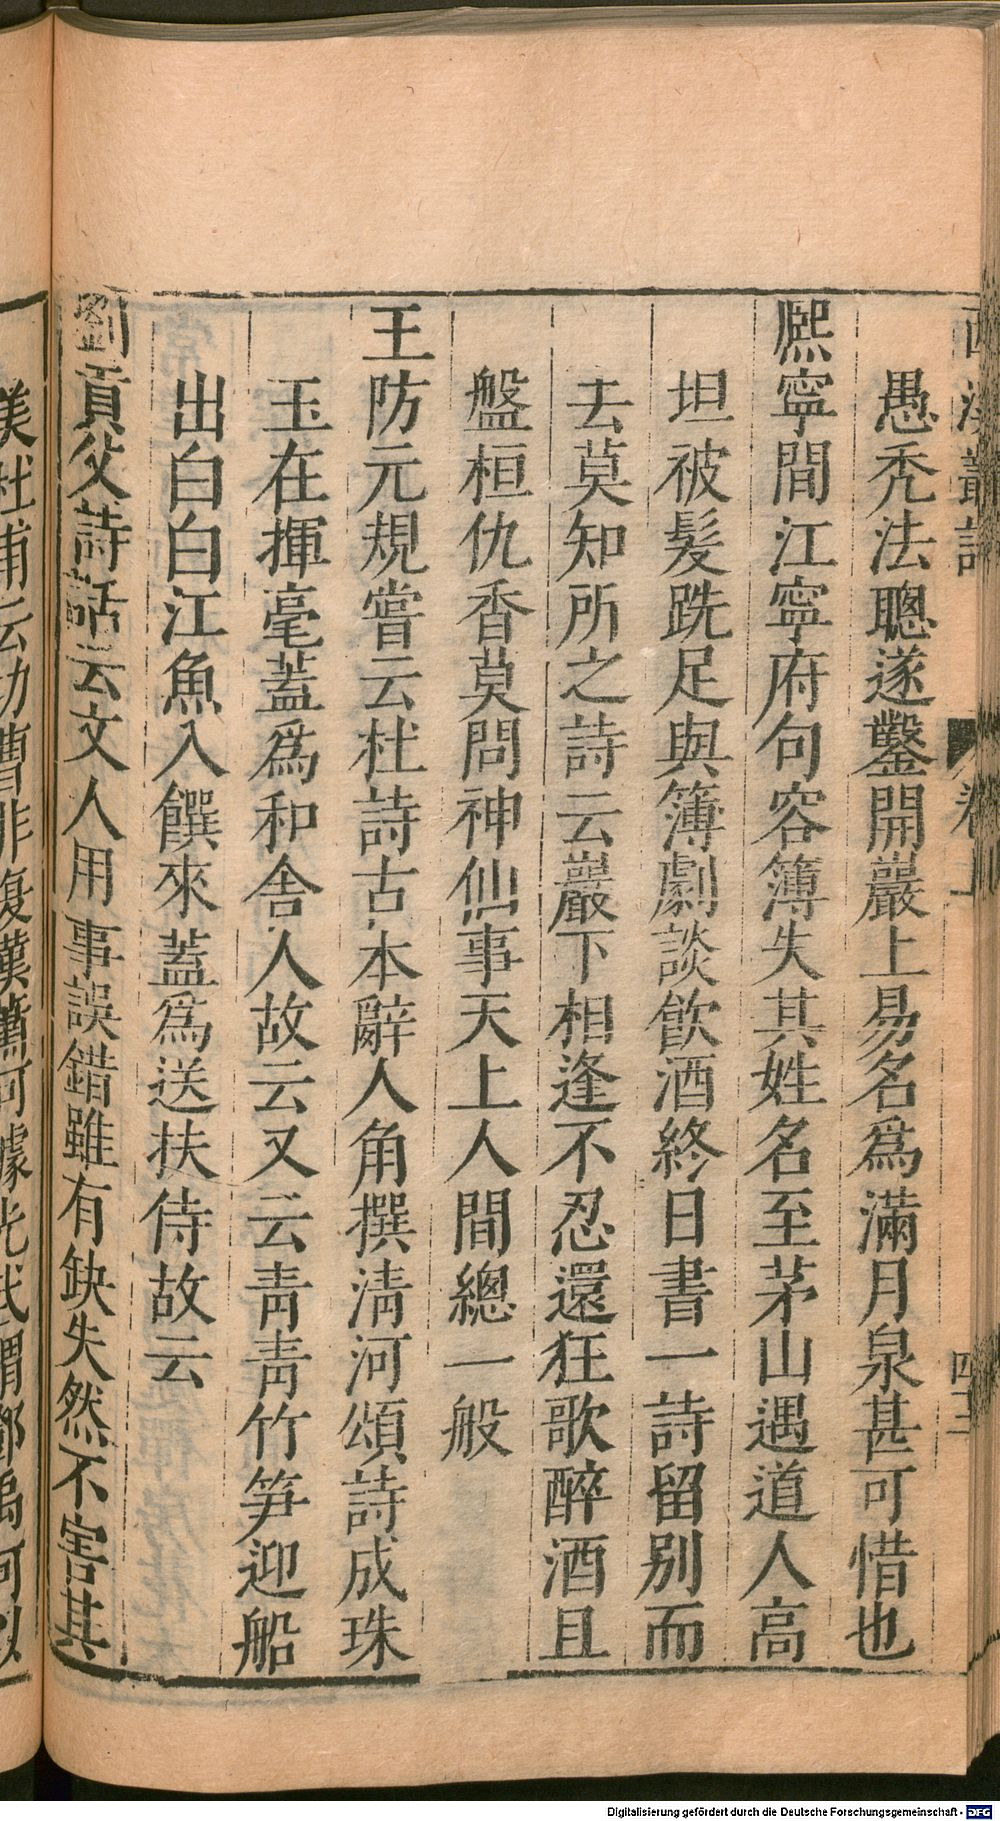 西溪叢語 卷上
愚禿法聰遂鑿開巖上易名爲滿月泉甚可惜也
熈寧間江寧府句容簿失其姓名至茅山遇道人高
坦被髮跣足與簿劇談飮酒終日書一詩留别而
去莫知所之詩云巖下相逢不忍還狂歌醉酒且
盤桓仇香莫問神仙事天上人間總一般
王防元規嘗云杜詩古本辭人角撰淸河頌詩成珠
玉在揮毫蓋爲和舍人故云又云靑靑竹笋迎船
出白白江魚入饌來蓋爲送扶侍故云
劉貢父詩話云文人用事誤錯雖有缺失然不害其
美杜甫云功曹非復漢蕭何據光武謂鄧禹何以
Digitalisierung gefördert durch die Deutsche Forschungsgemeinschaft - DFG